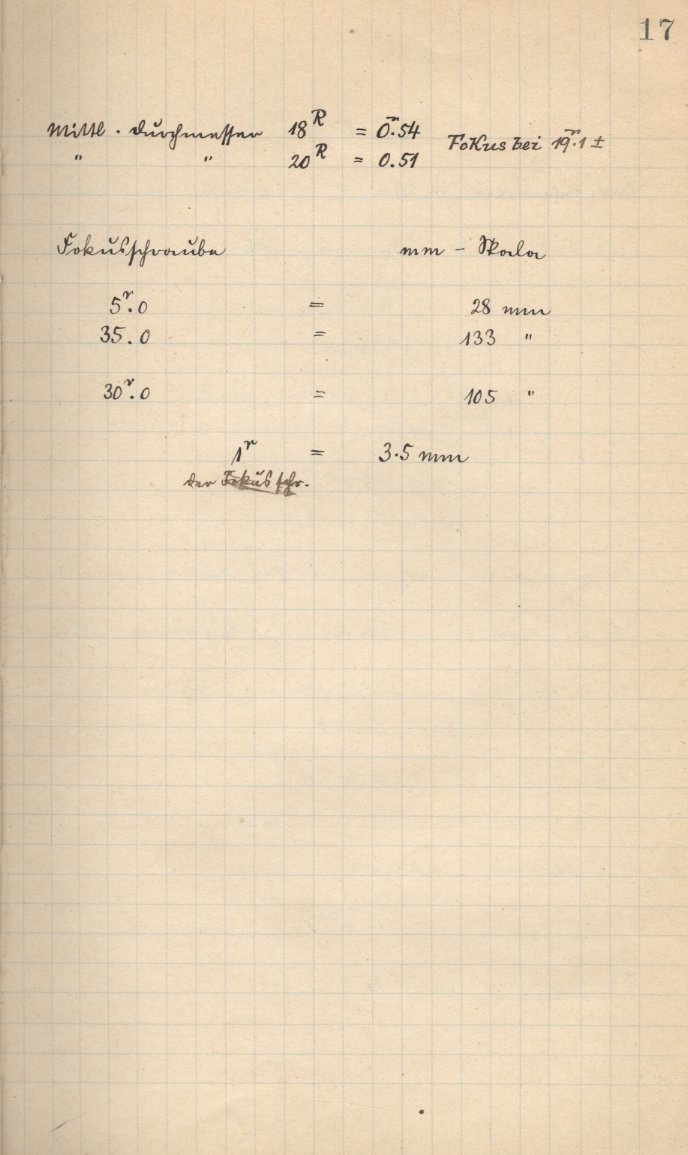 17
Mittl. Durchmesser 18ᴿ = 0ʳ.54 Fokus bei 19ʳ.1 ±
" " 20ᴿ = 0.51
Fokusschraube mm - Skala
5ʳ.0 = 28 mm
35.0 = 133 "
30ʳ.0 = 105 "
1ʳ = 3.5 mm
der Fokusschr.